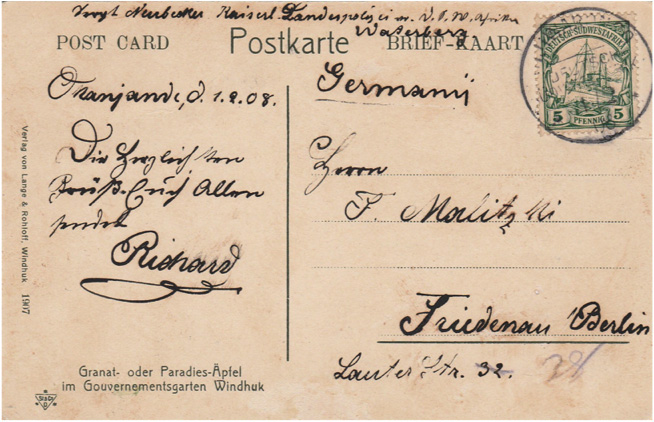 Kaiserl. Landespolizei in D. S. W. Afrika
Waterberg
POST CARD Postkarte BRIEF-KAART
DEUTSCH-SÜDWESTAFRIKA
5 PFENNIG 5
Germany
d. 1.9.08.
Die herzlichsten
Grüße Euch Allen
sendet
Richard
Herrn
F. Malitzki
Friedenau Berlin
Lauter Str. 32.
Granat- oder Paradies-Äpfel
im Gouvernementsgarten Windhuk
Verlag von Lange & Rohloff, Windhuk 1907